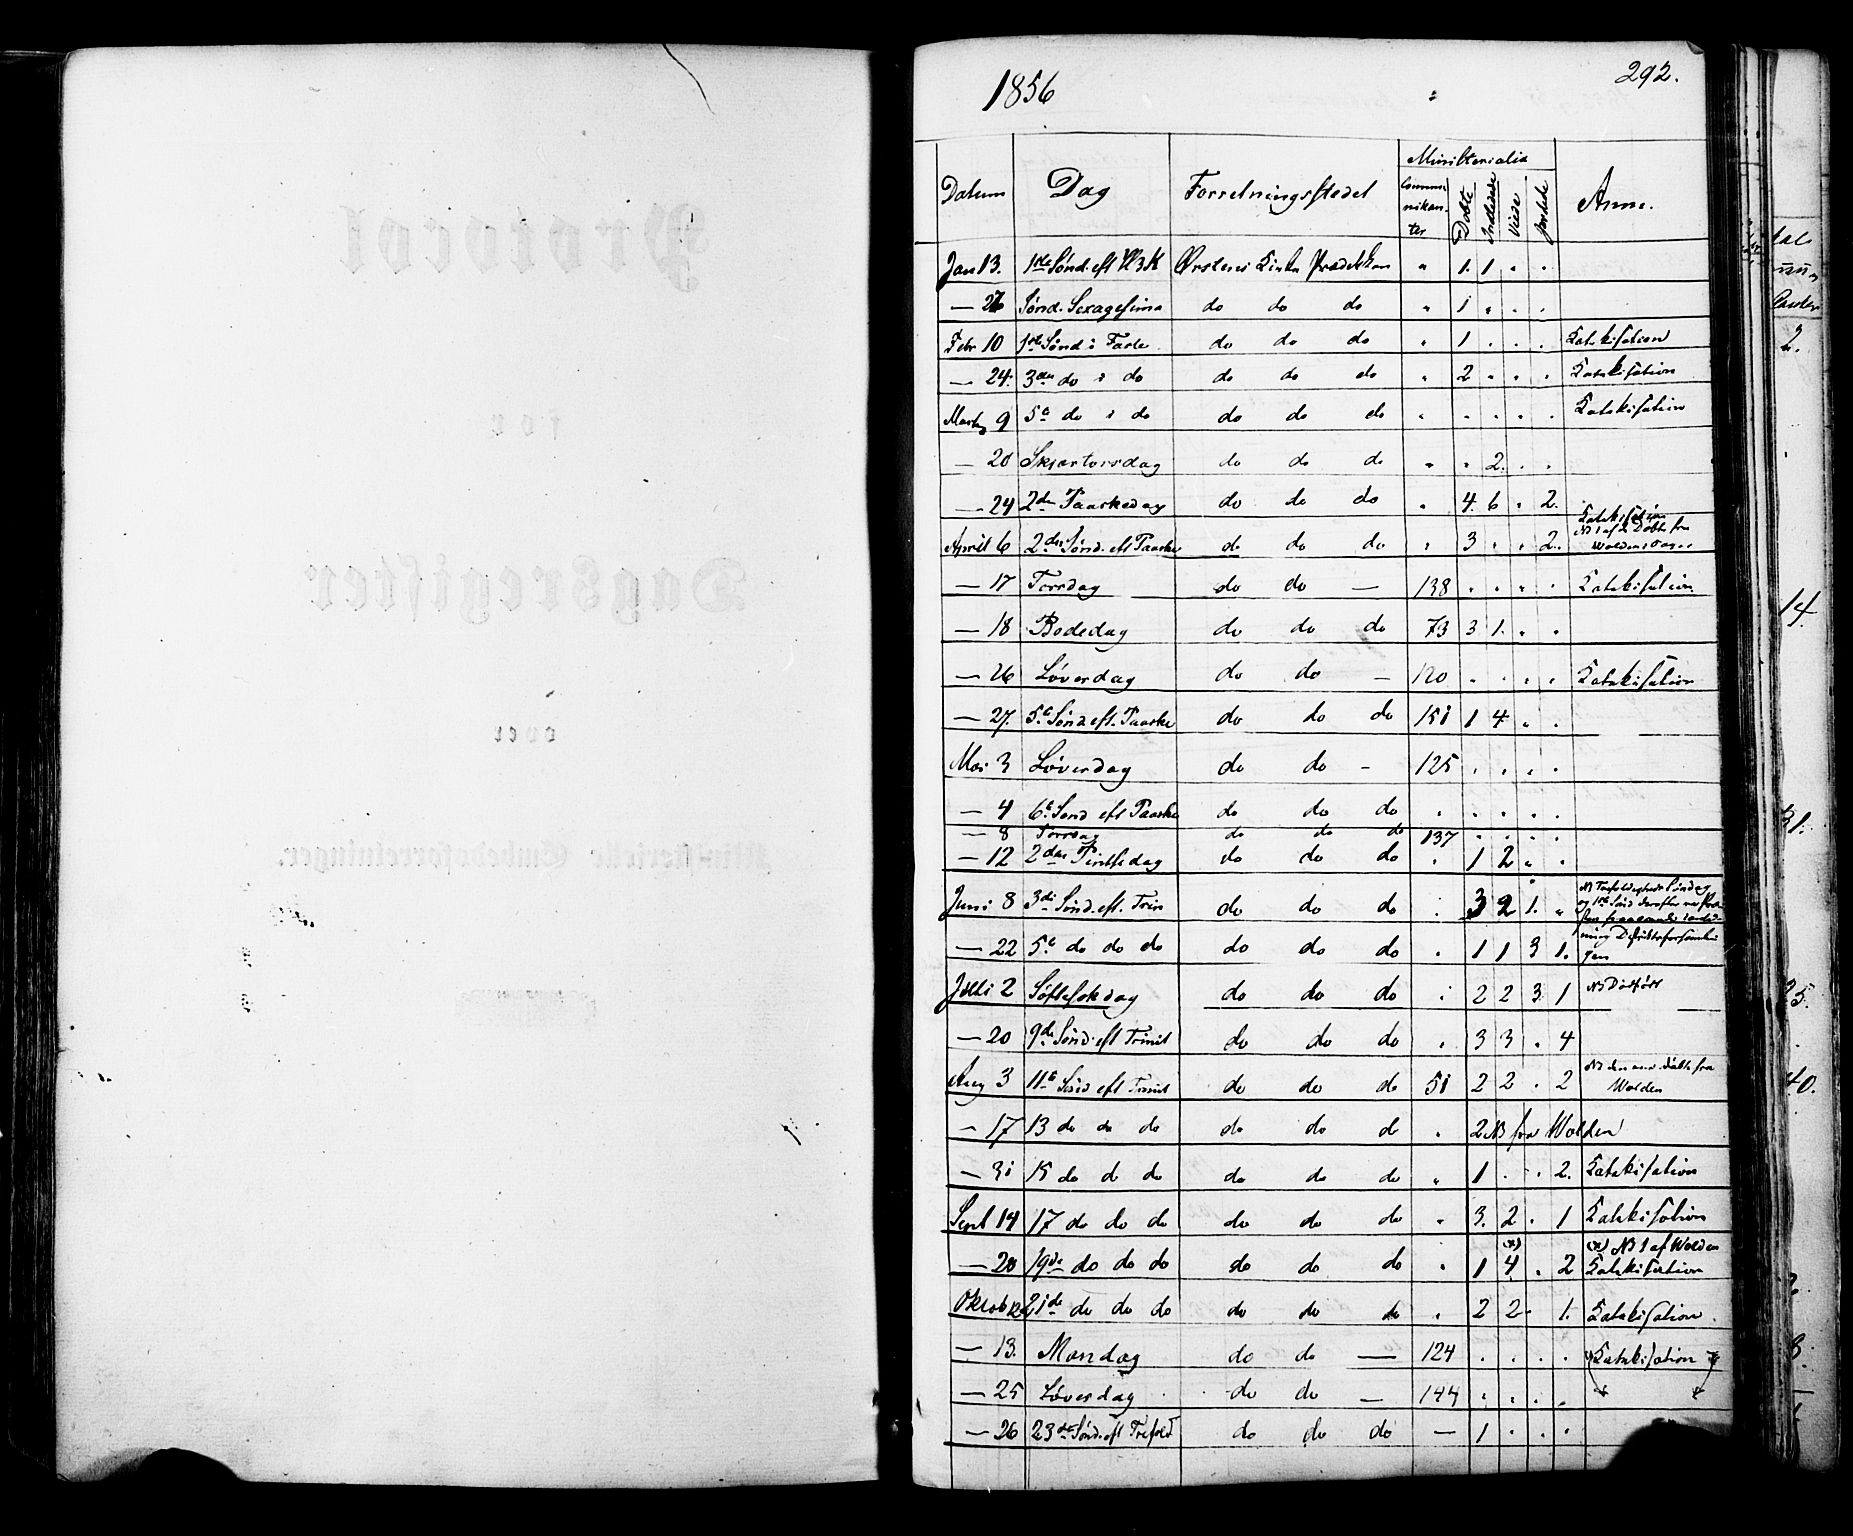 Protocol
for
Dagsregister
over
Ministerielle Embedsforretninger.
292.
1856
Datum Dag Forretningsstedet Ministerialia Anm.
Communikanter Døbte Indledede Viede Jordede
Jan 13. 1ste Sønd. eft H3K Ørstens Kirke Prædeken " 1. 1 " "
— 27 Sønd. Sexagesima do do do " 1 " " "
Febr 10 1ste Sønd i Faste do do do " 1 . . . Katekisation
— 24. 3die do i do do do do " 2 " " " Katekisation
Marts 9 5te do i do do do do " " " " " Katekisation
— 20 Skjærtorsdag do do do " " 2. . .
— 24 2den Paaskedag do do do " 4. 6 . 2.
April 6 2den Sønd. eft Paaske do do do " 3 " " 2. Katekisation NB 1 af de Døbte fra Wolden
— 17 Torsdag do do — 138 . . . . Katekisation
— 18 Bededag do do do 73 3 1. . .
— 26 Løverdag do do — 120 . . . . Katekisation
— 27. 5te Sønd eft. Paaske do do do 151 1 4 . .
Mai 3 Løverdag do do — 125 . . . .
— 4 6te Sønd eft Paaske do do do . . . . .
— 8 Torsdag do do do 137 . . . .
— 12 2den Pintsedag do do do . 1 2 . .
Juni 8 3die Sønd. eft. Trin do do do . 3 2 1. " NB Trefoldigheds Søndag
og 1ste Sønd derefter
— 22 5te do do do do do do . 1 1 3 1.
Juli 2 Søftesokdag do do do . 2 2 3 1 NB
— 20 9de Sønd. eft Trinit do do do . 3 3 . 4
Aug 3 11te Sønd eft Trinit do do do 51 2 2 . 2 NB den ene døbte fra
Wolden
— 17 13 do do do do do do " 2 NB fra Wolden
— 31 15 do do do do do do " 1 . . 2. Katekisation
Sept 14 17 do do do do do do " 3. 2 . 1 Katekisation
(x) (x) NB 1 af Wolden
— 28 19de do do do do do do " 1 4 . 2 Katekisation
Oktob 12 21de do do do do do do " 2 2 . 1. Katekisation.
— 13. Mandag do do — 124 . . . . Katekisation
— 25 Løverdag do do — 144 . . . .
— 26 23de Sønd. eft Trefold do do do — 1 . . .
2.
14.
31.
25.
40.
3.